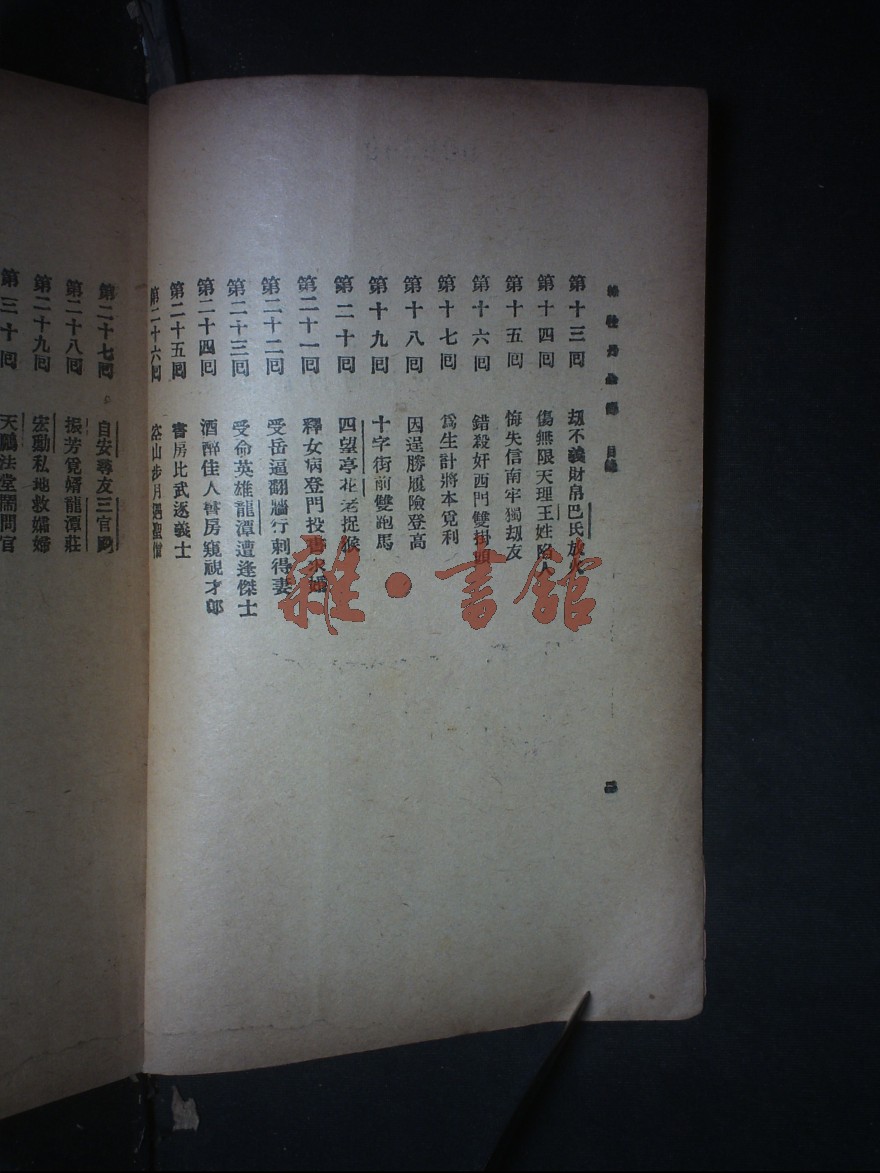 綠牡丹全傳 目錄 二
第十三囘 刼不義財帛巴氏放火
第十四囘 傷無限天理王姓陷人
第十五囘 悔失信南牢獨刼友
第十六囘 錯殺奸西門雙掛頭
第十七囘 爲生計將本覓利
第十八囘 因逞勝履險登高
第十九囘 十字街前雙跑馬
第二十囘 四望亭花老捉猴
第二十一囘 釋女病登門投書求婚
第二十二囘 受岳逼翻牆行刺得妻
第二十三囘 受命英雄龍潭遭逢傑士
第二十四囘 酒醉佳人書房窺視才郎
第二十五囘 書房比武逐義士
第二十六囘 空山步月遇聖僧
第二十七囘 自安尋友三官殿
第二十八囘 振芳覓婿龍潭莊
第二十九囘 宏勳私地救孀婦
第三十囘 天鵬法堂鬧問官
雜·書館